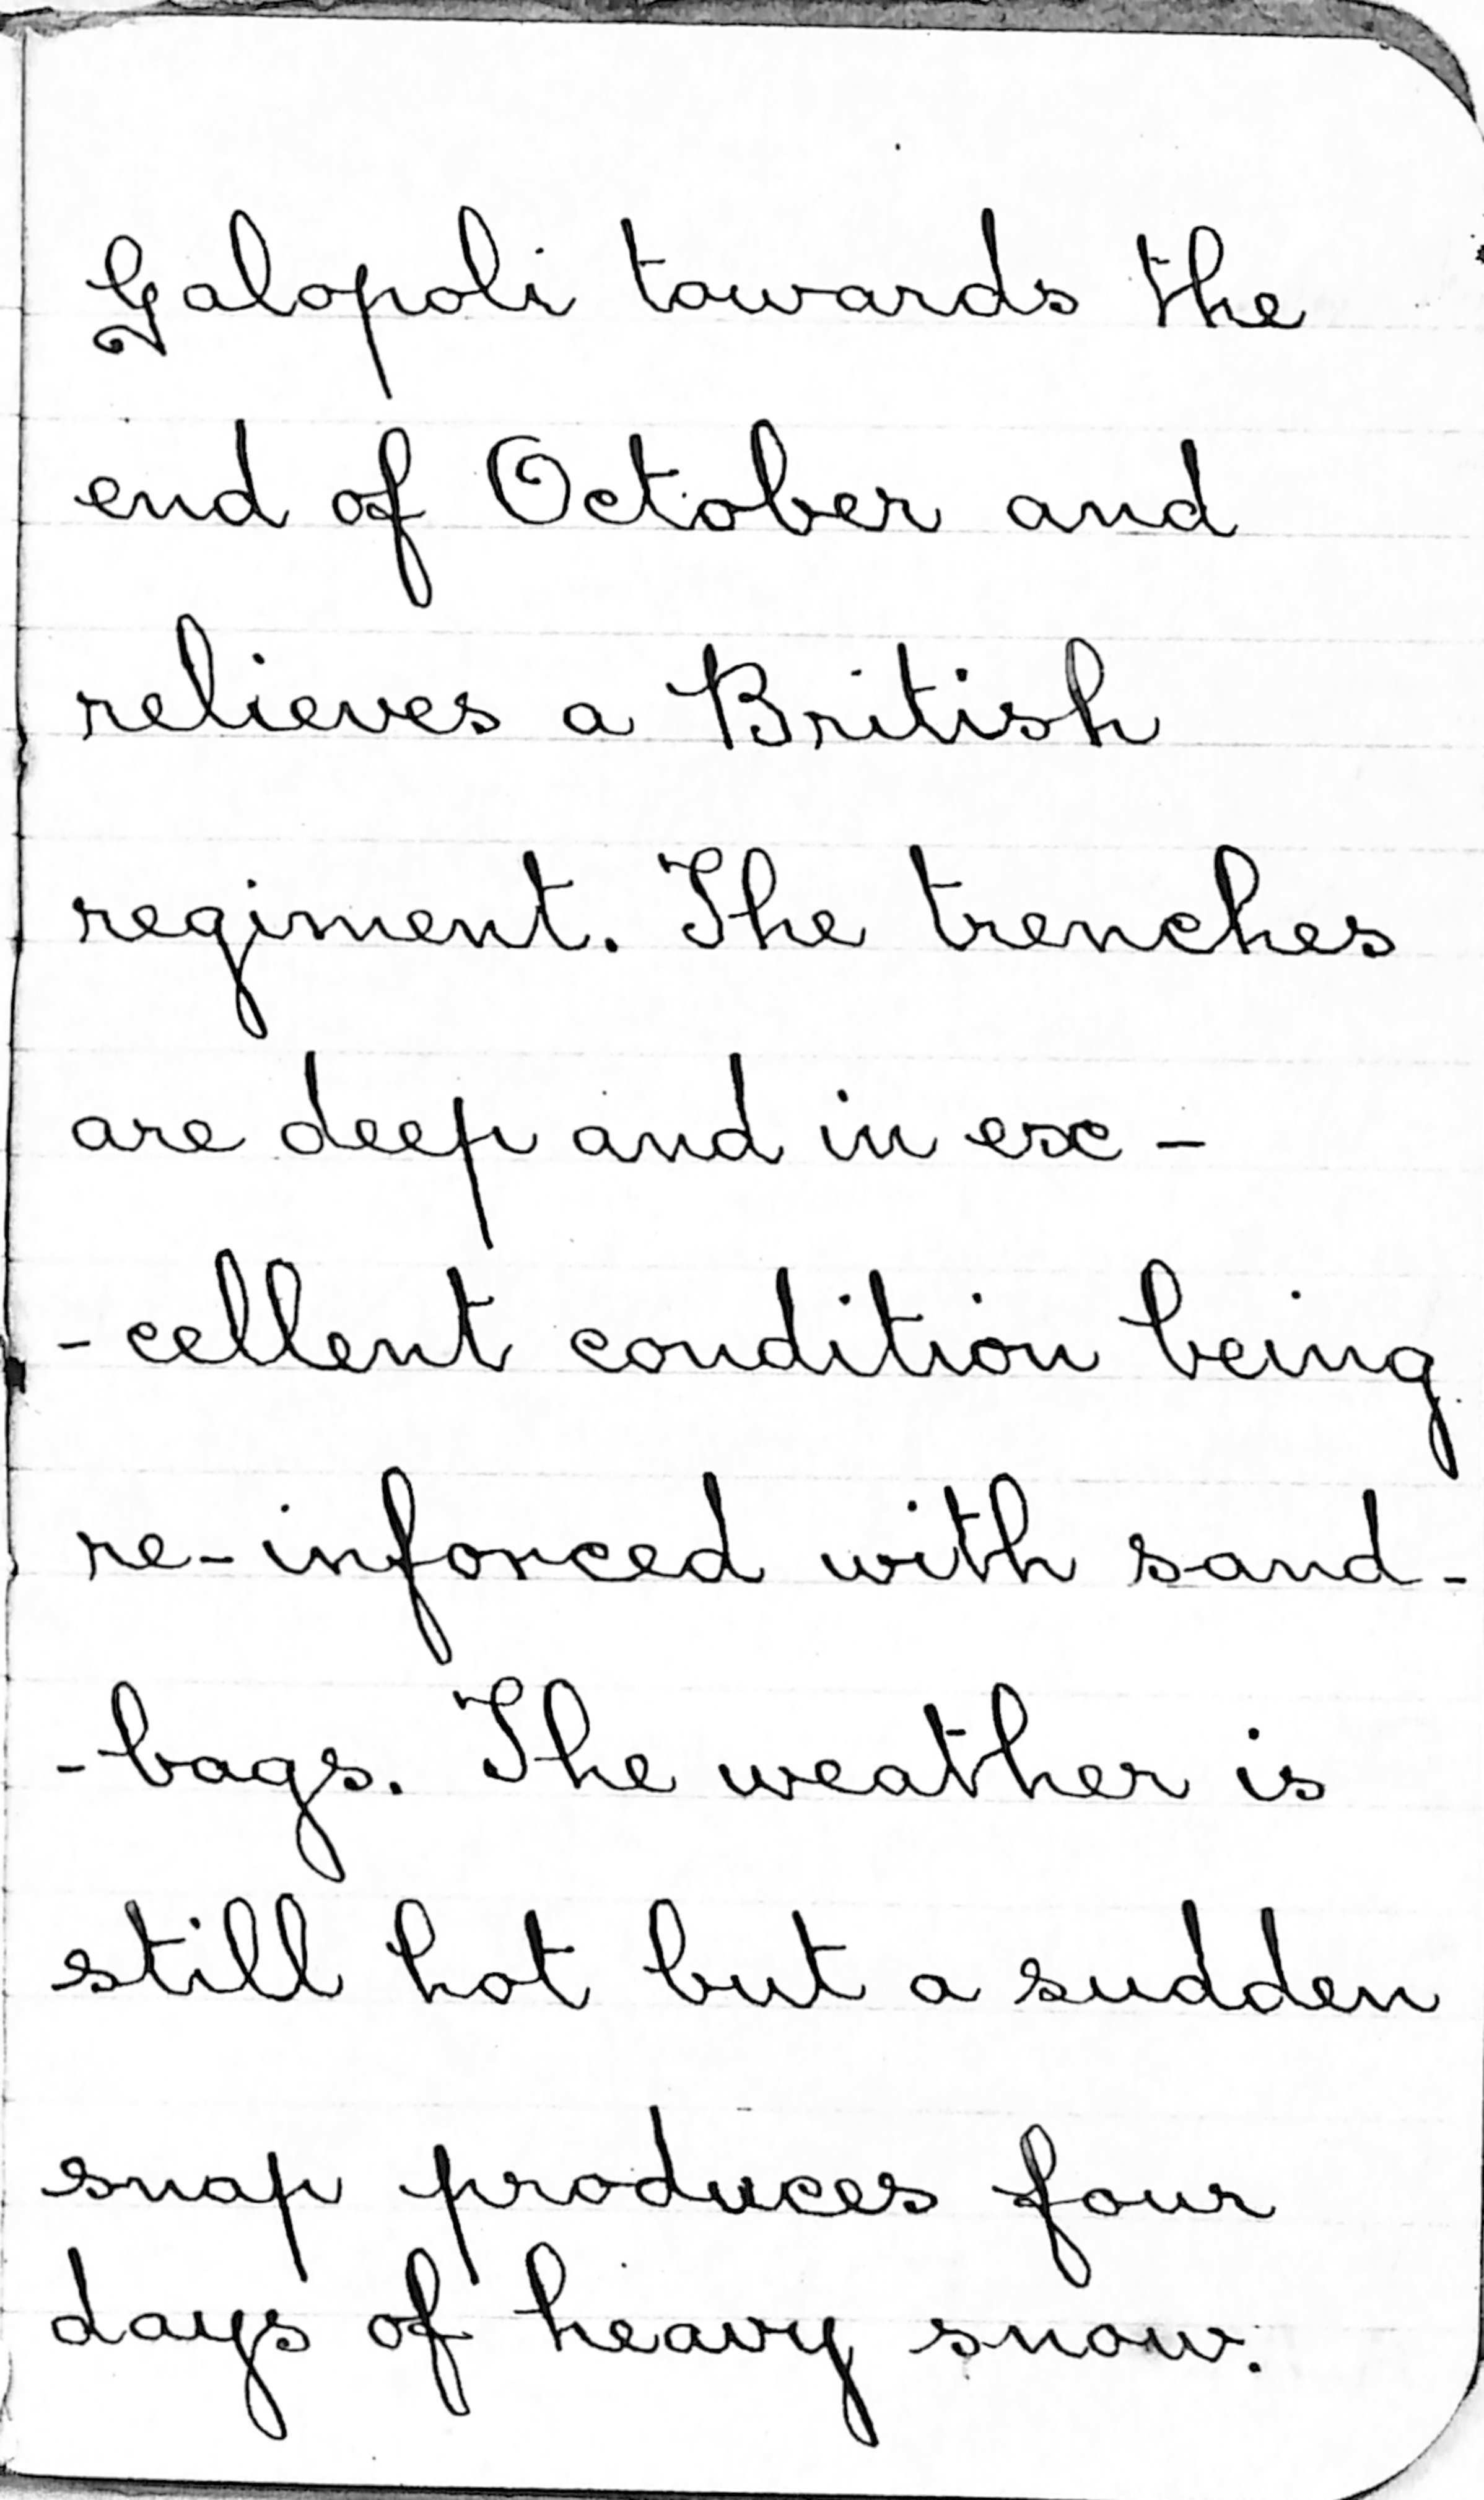 Galopoli towards the
end of October and
relieves a British
regiment. The trenches
are deep and in ex-
-cellent condition being
re-inforced with sand-
-bags. The weather is
still hot but a sudden
snap produces four
days of heavy snow.